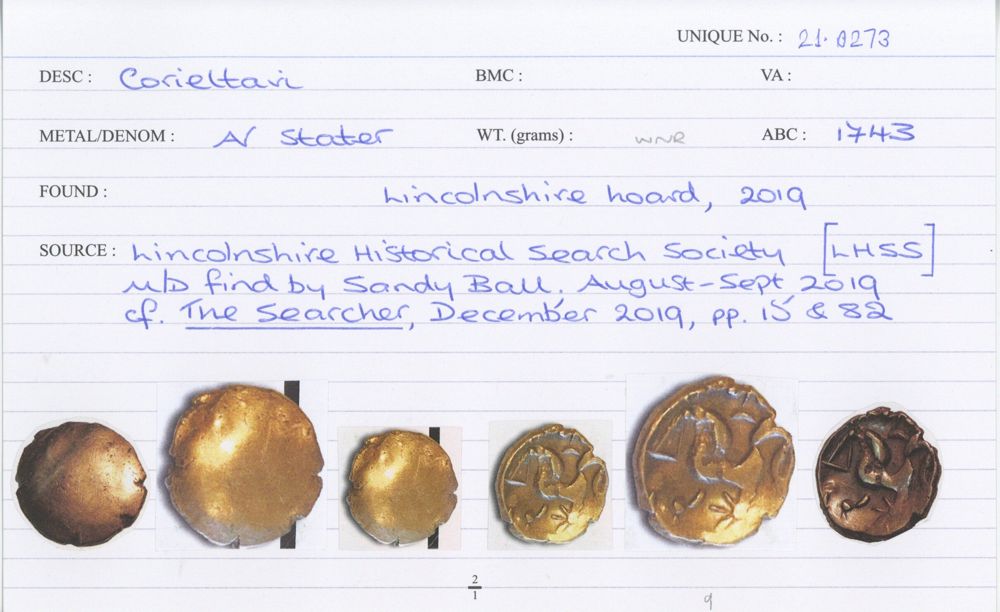 UNIQUE No. : 21.0273
DESC : Corieltavi BMC : VA :
METAL/DENOM : AV Stater WT. (grams) : WNR ABC : 1743
FOUND : Lincolnshire hoard, 2019
SOURCE : Lincolnshire Historical Search Society [LHSS]
M/D find by Sandy Ball. August-Sept 2019
cf. The Searcher, December 2019, pp. 15 & 82
2
1
9